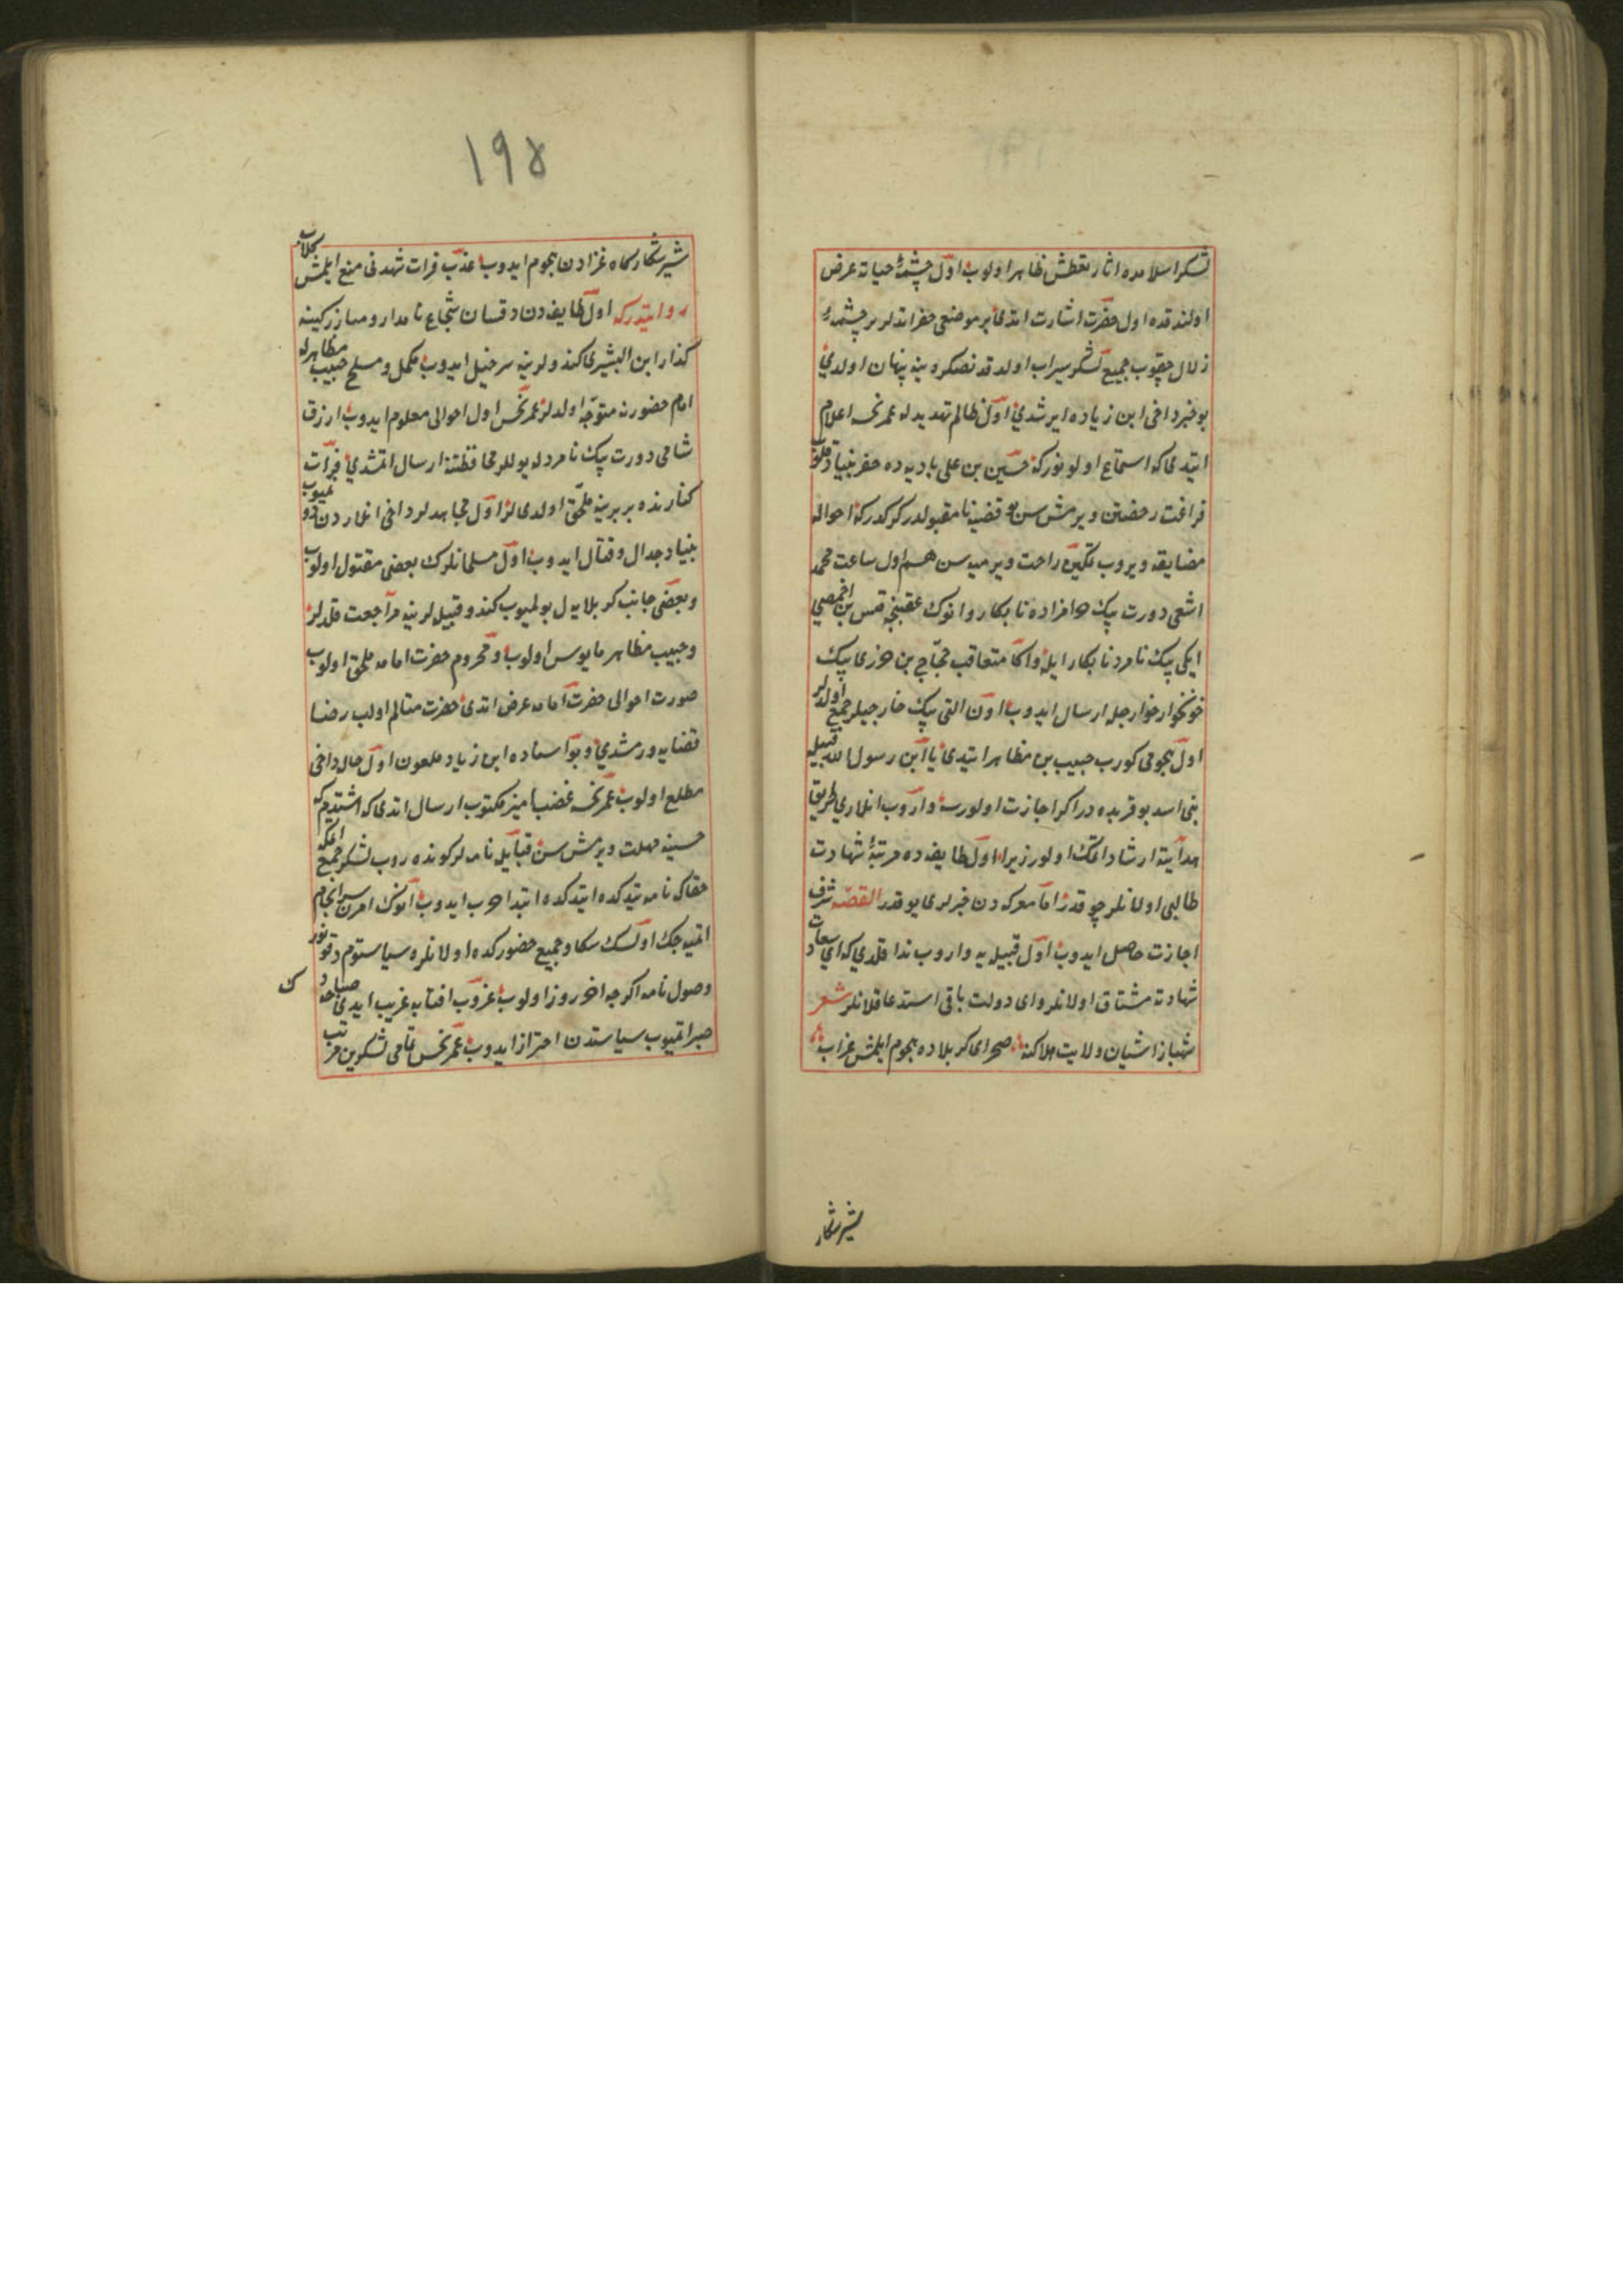 لشکر اسلامده اثار تعطش ظاهر اولوب اول چشمهٔ حیاته عرض
اولندقده اول حضرت اشارت اتدی بر موضعی حفر اتدلر بر چشمهٔ
زلال چقوب جمیع لشکر سیراب اولدقدنصکره ینه پنهان اولدی
بو خبر داخی ابن زیاده ایرشدی اول ظالم تهدیدله عمر نحسه اعلام
ایتدی که استماع اولونور که حسین بن علی بادیه ده حفر بنیاد قلوب
فراغت رخصتن ویرمش سن بو قضیه نامقبولدر کرکدر که احواله
مضایقه ویروب تکیره راحت ویرمیه سن هم اول ساعت محمد
اشعی دورت بیک حرامزاده نابکار روانوک عقبنجه قیس بن احمصی
ایکی بیک نامرد نابکار ایله واکا متعاقب حجاج بن حزی بیک
خونخوار خوارجله ارسال ایدوب اون التی بیک خارجیلر جمع اولدلر
اول هجومی کورب حبیب بن مظاهر ایتدی یا ابن رسول الله قبیله
بنی اسد بو قربده در اکر اجازت اولورسه واروب انلاری طریق
هدایته ارشاد اتمک اولور زیرا اول طایفه ده مرتبهٔ شهادت
طالبی اولانلر چوقدر اما معرکه دن خبرلری یوقدر القصه شرف
اجازت حاصل ایدوب اول قبیله یه واروب ندا قلدی که ای سعادت
شهادته مشتاق اولانلر وای دولت باقی استدعا قلانلر شعر
شهباز اشیان ولایت هلاکنه صحرای کربلاده هجوم ایلمش غراب
شیر شکار
۱۹۵
شیر شکارکاه غزادن هجوم ایدوب عذب فرات شهدنی منع ایلمش کلاب
روایتدرکه اول طایفه دن دقسان شجاع نامدار و مبارز کینه
کذار ابن البشیری کندولرینه سرخیل ایدوب مکمل و مسلح حبیب مظاهرله
امام حضورنه متوجه اولدلر عمر نحس اول احوالی معلوم ایدوب ارزق
شامی دورت بیک نامردله یوللر محافظتنه ارسال اتمشدی فرات
کنارنده بربرینه ملحق اولدی لر اول مجاهدلر داخی انلاردن دونمیوب
بنیاد جدال و قتال ایدوب اول مسلمانلرک بعضی مقتول اولوب
و بعضی جانب کربلایه یول بولمیوب کندو قبیله لرینه مراجعت قلدلر
و حبیب مظاهر مایوس اولوب و محروم حضرت امامه ملحق اولوب
صورت احوالی حضرت امامه عرض اتدی حضرت متالم اولب رضا
قضایه ورمشدی و بو اسناده ابن زیاد ملعون اول حال داخی
مطلع اولوب عمر نحسه غضب امیز مکتوب ارسال اتدی که اشتدم که
حسینه مهلت ویرمش سن قبایل نامه لر کونده روب لشکر جمع اتمکه
حقاکه نامه یتدکده ایتدکده ابتدا حرب ایدوب انوک امرن سرانجام
اتمیه جک اولسک سکا و جمیع حضورکده اولانلره سیاستوم دقونور
وصول نامه اکرچه اخر روز اولوب غروب افتابه غریب ایدی صباحه
صبر اتمیوب سیاستدن احتراز ایدوب عمر نحس تمامی لشکرین مرتب